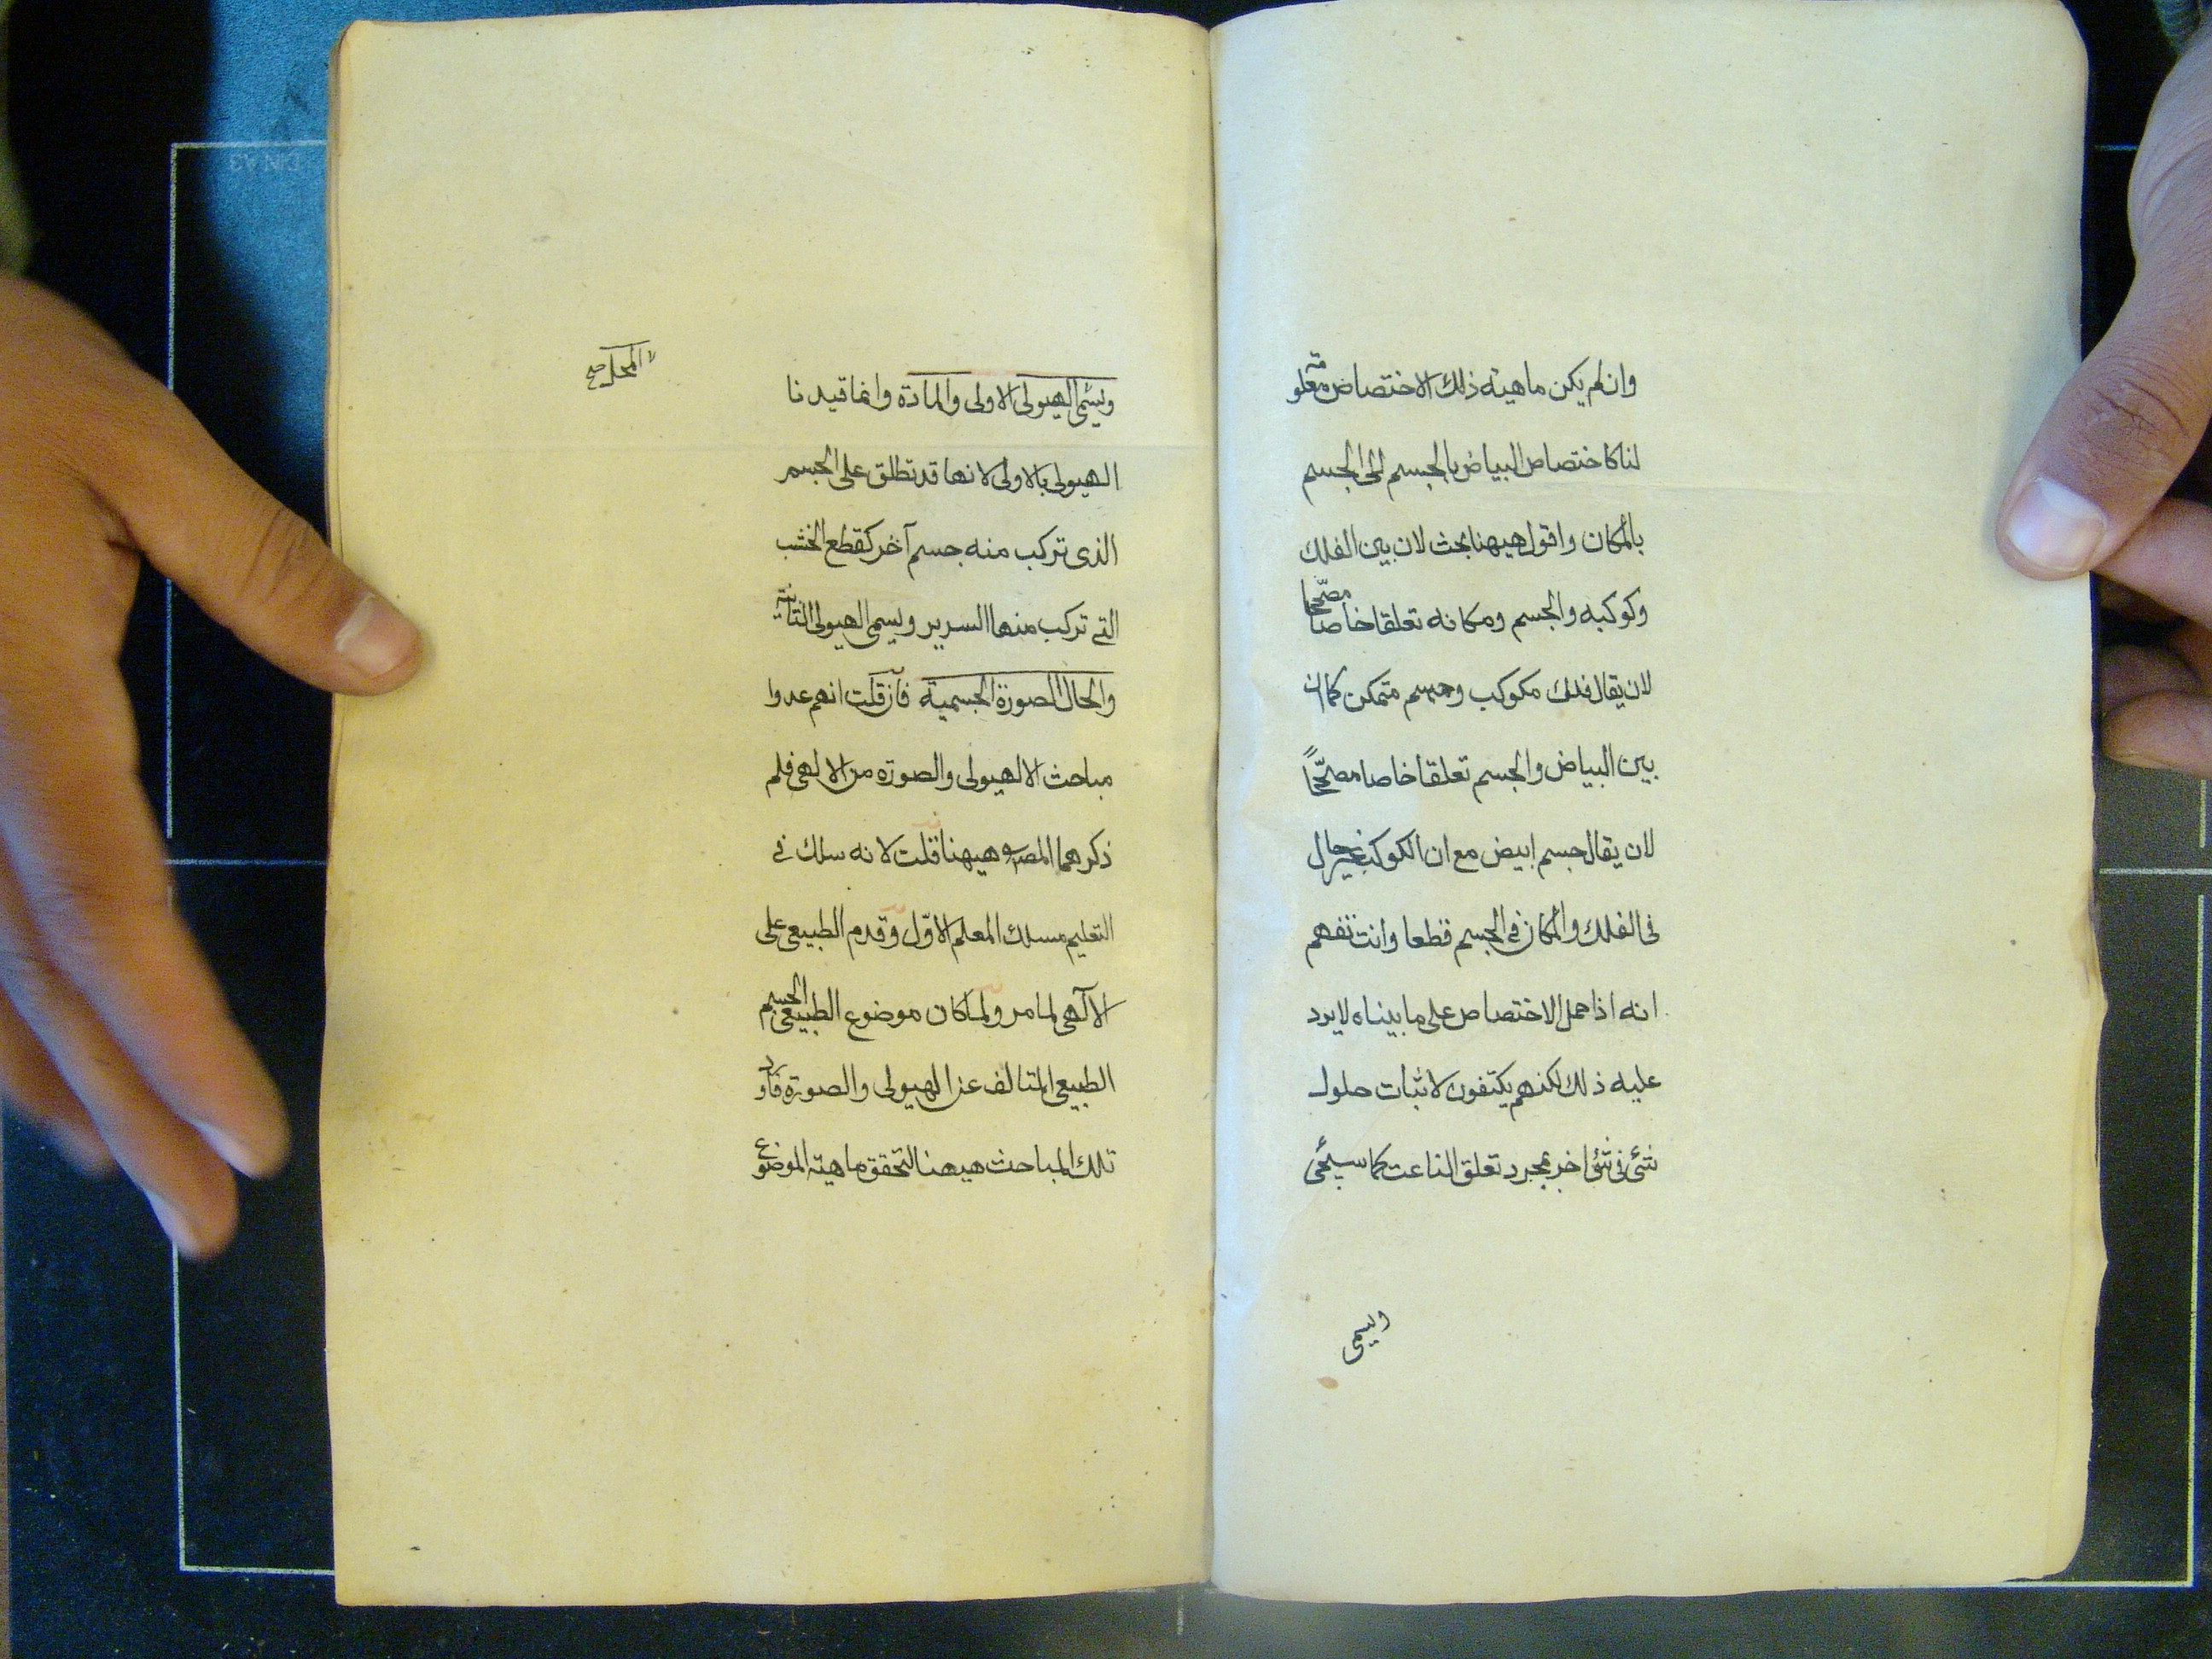 وان لم يكن ماهية ذلك الاختصاص معلومة
لنا كاختصاص البياض بالجسم لا الجسم
بالمكان واقول هيهنا بحث لان بين الفلك
وكوكبه والجسم ومكانه تعلقا خاصا مصححا
لان يقال فلك مكوكب وجسم متمكن كما ان
بين البياض والجسم تعلقا خاصا مصححاً
لان يقال جسم ابيض مع ان الكوكب غير حال
فى الفلك والمكان فى الجسم قطعا وانت تفهم
انه اذا حمل الاختصاص على ما بيناه لا يرد
عليه ذلك لكنهم يكتفون لاثبات حلول
شئ فى شئ اخر بمجرد تعلق الناعت كما سيجئ
ويسمى
المحل صح
ويسمى الهيولى الاولى والمادة وانما قيدنا
الهيولى بالاولى لانها قد تطلق على الجسم
الذى تركب منه جسم آخر كقطع الخشب
التى تركب منها السرير ويسمى الهيولى الثانية
والحال الصورة الجسمية فان قلت انهم عدوا
مباحث الالهيولى والصورة من الالهى فلم
ذكرهما المص هيهنا قلت لانه سلك فى
التعليم مسلك المعلم الاوّل وقدم الطبيعى على
الآلهى لما مر ولما كان موضوع الطبيعى الجسم
الطبيعى المتالف عن الهيولى والصورة فاورد
تلك المباحث هيهنا لتحقق ماهية الموضوع